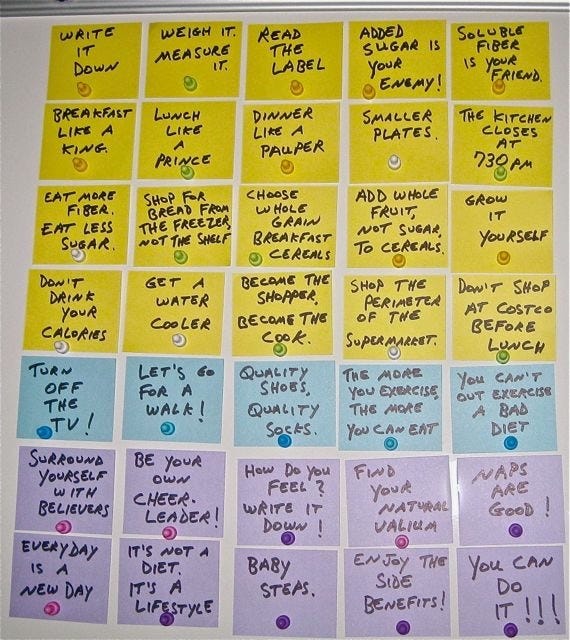 WRITE
IT
DOWN
WEIGH IT.
MEASURE
IT.
READ
THE
LABEL
ADDED
SUGAR IS
YOUR
ENEMY!
SOLUBLE
FIBER
IS YOUR
FRIEND.
BREAKFAST
LIKE A
KING.
LUNCH
LIKE
A
PRINCE
DINNER
LIKE A
PAUPER
SMALLER
PLATES.
THE KITCHEN
CLOSES
AT
730 PM
EAT MORE
FIBER.
EAT LESS
SUGAR.
SHOP FOR
BREAD FROM
THE FREEZER,
NOT THE SHELF
CHOOSE
WHOLE
GRAIN
BREAKFAST
CEREALS
ADD WHOLE
FRUIT,
NOT SUGAR,
TO CEREALS.
GROW
IT
YOURSELF
DON'T
DRINK
YOUR
CALORIES
GET A
WATER
COOLER
BECOME THE
SHOPPER,
BECOME THE
COOK.
SHOP THE
PERIMETER
OF THE
SUPERMARKET.
DON'T SHOP
AT COSTCO
BEFORE
LUNCH
TURN
OFF
THE
TV!
LET'S GO
FOR A
WALK!
QUALITY
SHOES,
QUALITY
SOCKS.
THE MORE
YOU EXERCISE,
THE MORE
YOU CAN EAT
YOU CAN'T
OUT EXERCISE
A BAD
DIET
SURROUND
YOURSELF
WITH
BELIEVERS
BE YOUR
OWN
CHEER-
LEADER!
HOW DO YOU
FEEL?
WRITE IT
DOWN!
FIND
YOUR
NATURAL
VALIUM
NAPS
ARE
GOOD!
EVERYDAY
IS A
NEW DAY
IT'S NOT A
DIET.
IT'S A
LIFESTYLE
BABY
STEPS.
ENJOY THE
SIDE
BENEFITS!
YOU CAN
DO
IT!!!